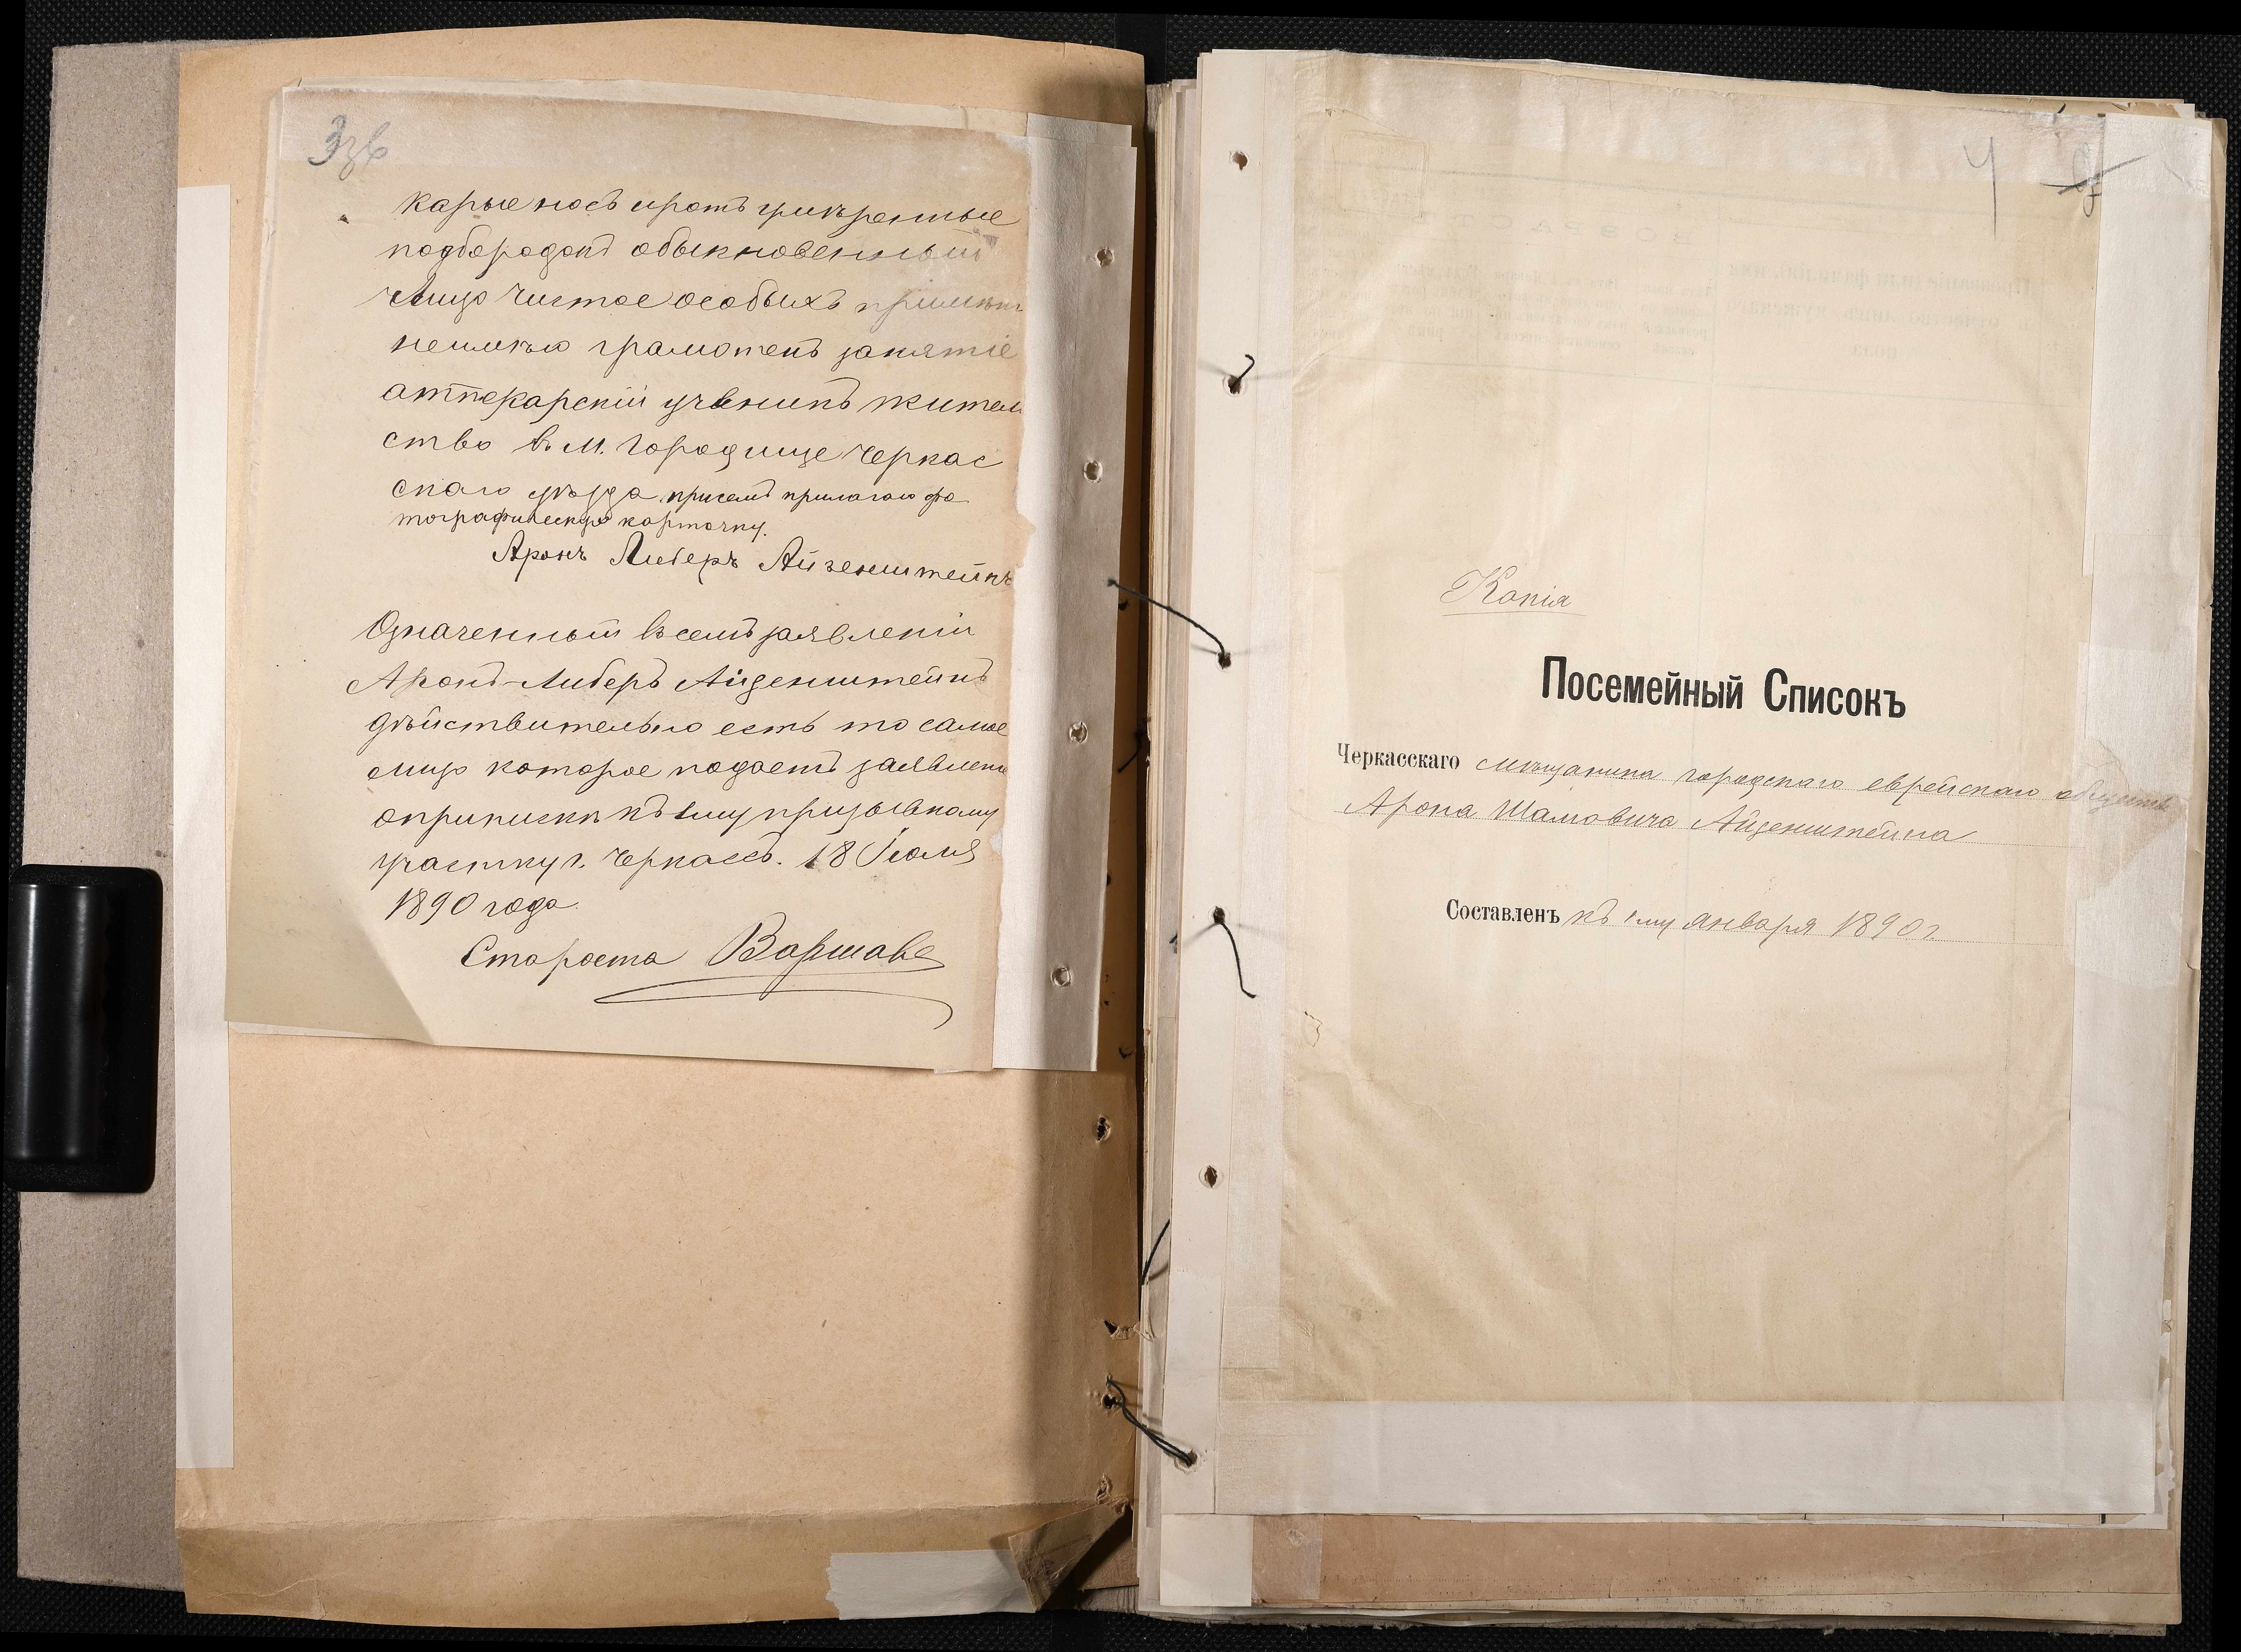 3зв
карые носъ и ротъ умѣренные
подбородокъ обыкновенный
Лицо чистое особыхъ примѣт
неимѣю грамотенъ занятіе
аптекарскій ученикъ житель
ство въ М. Городище Черкас
скаго уѣзда присемъ прилагаю фо
тографическую карточку.
Аронъ Либеръ Айзенштейнъ
Означенный въ семъ заявленіи
Аронъ-Либеръ Айзенштейнъ
дѣйствительно есть то самое
лицо которое подаетъ заявлені
оприпискѣ къ 1му призывному
участку г. Черкассъ. 18 Іюля
1890 года
Староста
4
Копія
Посемейный Списокъ
Черкасскаго мѣщанина городскаго еврейскаго общества
Арона Шамовича Айзенштейна
Составленъ къ 1му января 1890 г.